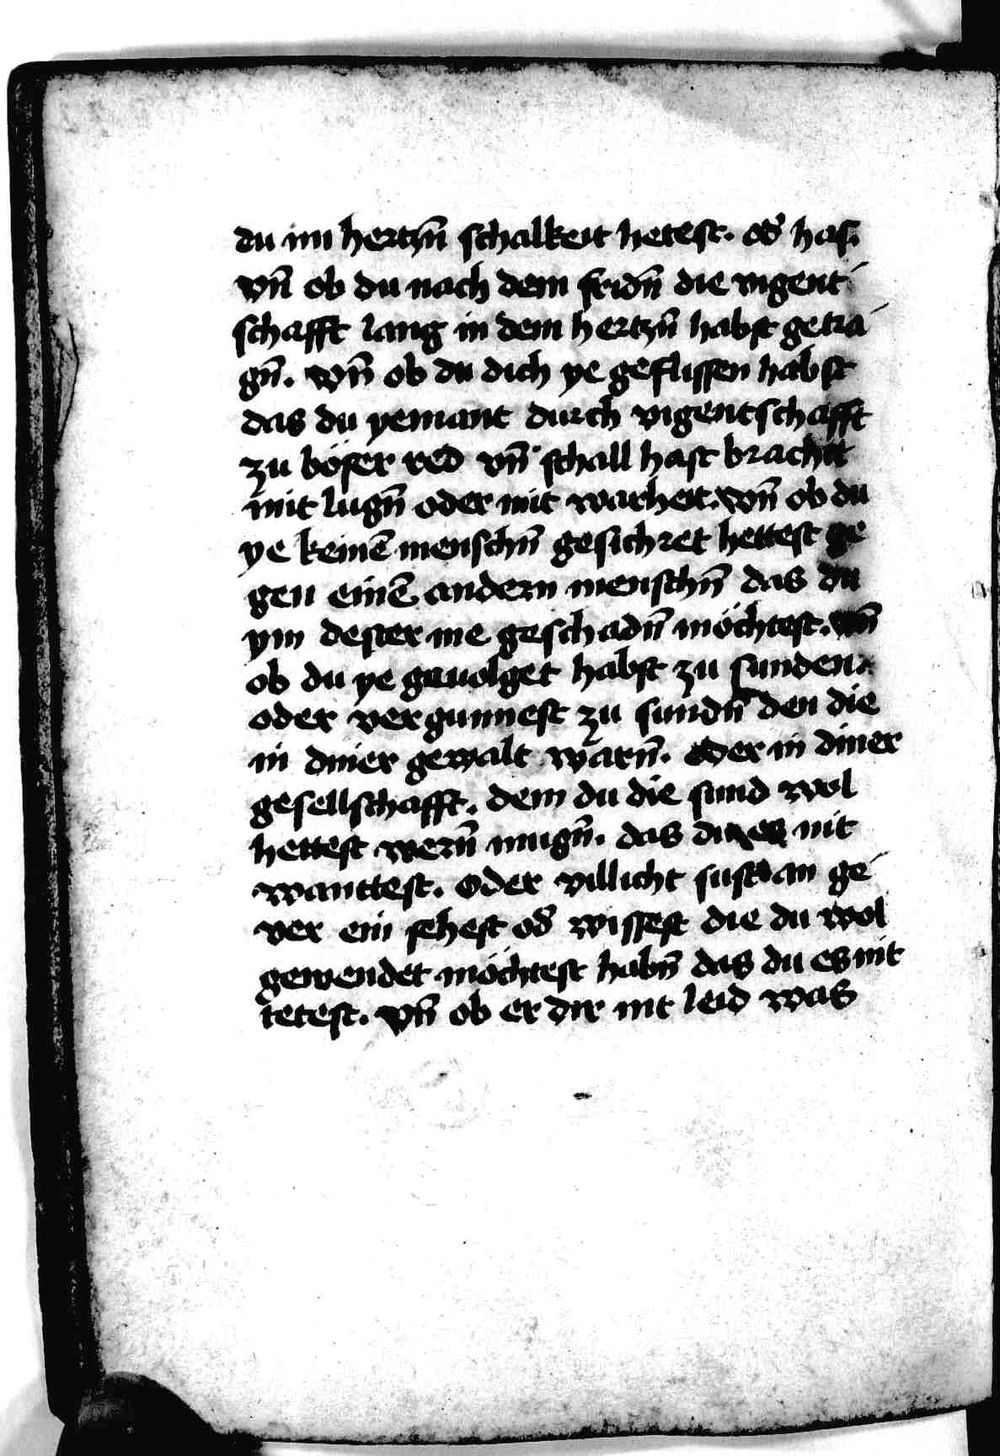 du im hertzn̄ schalkeit hetest. od̕ has.
vn̄ ob du nach dem fridn̄ die vigent
schafft lang in dem hertzn̄ habst getra
gn̄. vnn̄ ob du dich ye geflissen habst
das du yemant durch vigentschafft
zu böser red vn̄ schall hast bracht
mit lugn̄ oder mit warheit. vnn̄ ob du
ye keinē menschn̄ gesichret hettest ge
gen einē andern menschn̄ das du
ym dester me geschadn̄ möchtest. vnn̄
ob du ye geuolget habst zu sunden
oder vergunnest zu sundn̄ den die
in diner gewalt warn̄. oder in diner
gesellschafft. dem du die sund wol
hettest wern̄ mugn̄. das du es nit
wanttest. Oder villicht sust an ge
ver ein sehest od̕ wissest die du wol
gewendet möchtest habn̄ das du es nit
tetest. vn̄ ob er dir nit leid was